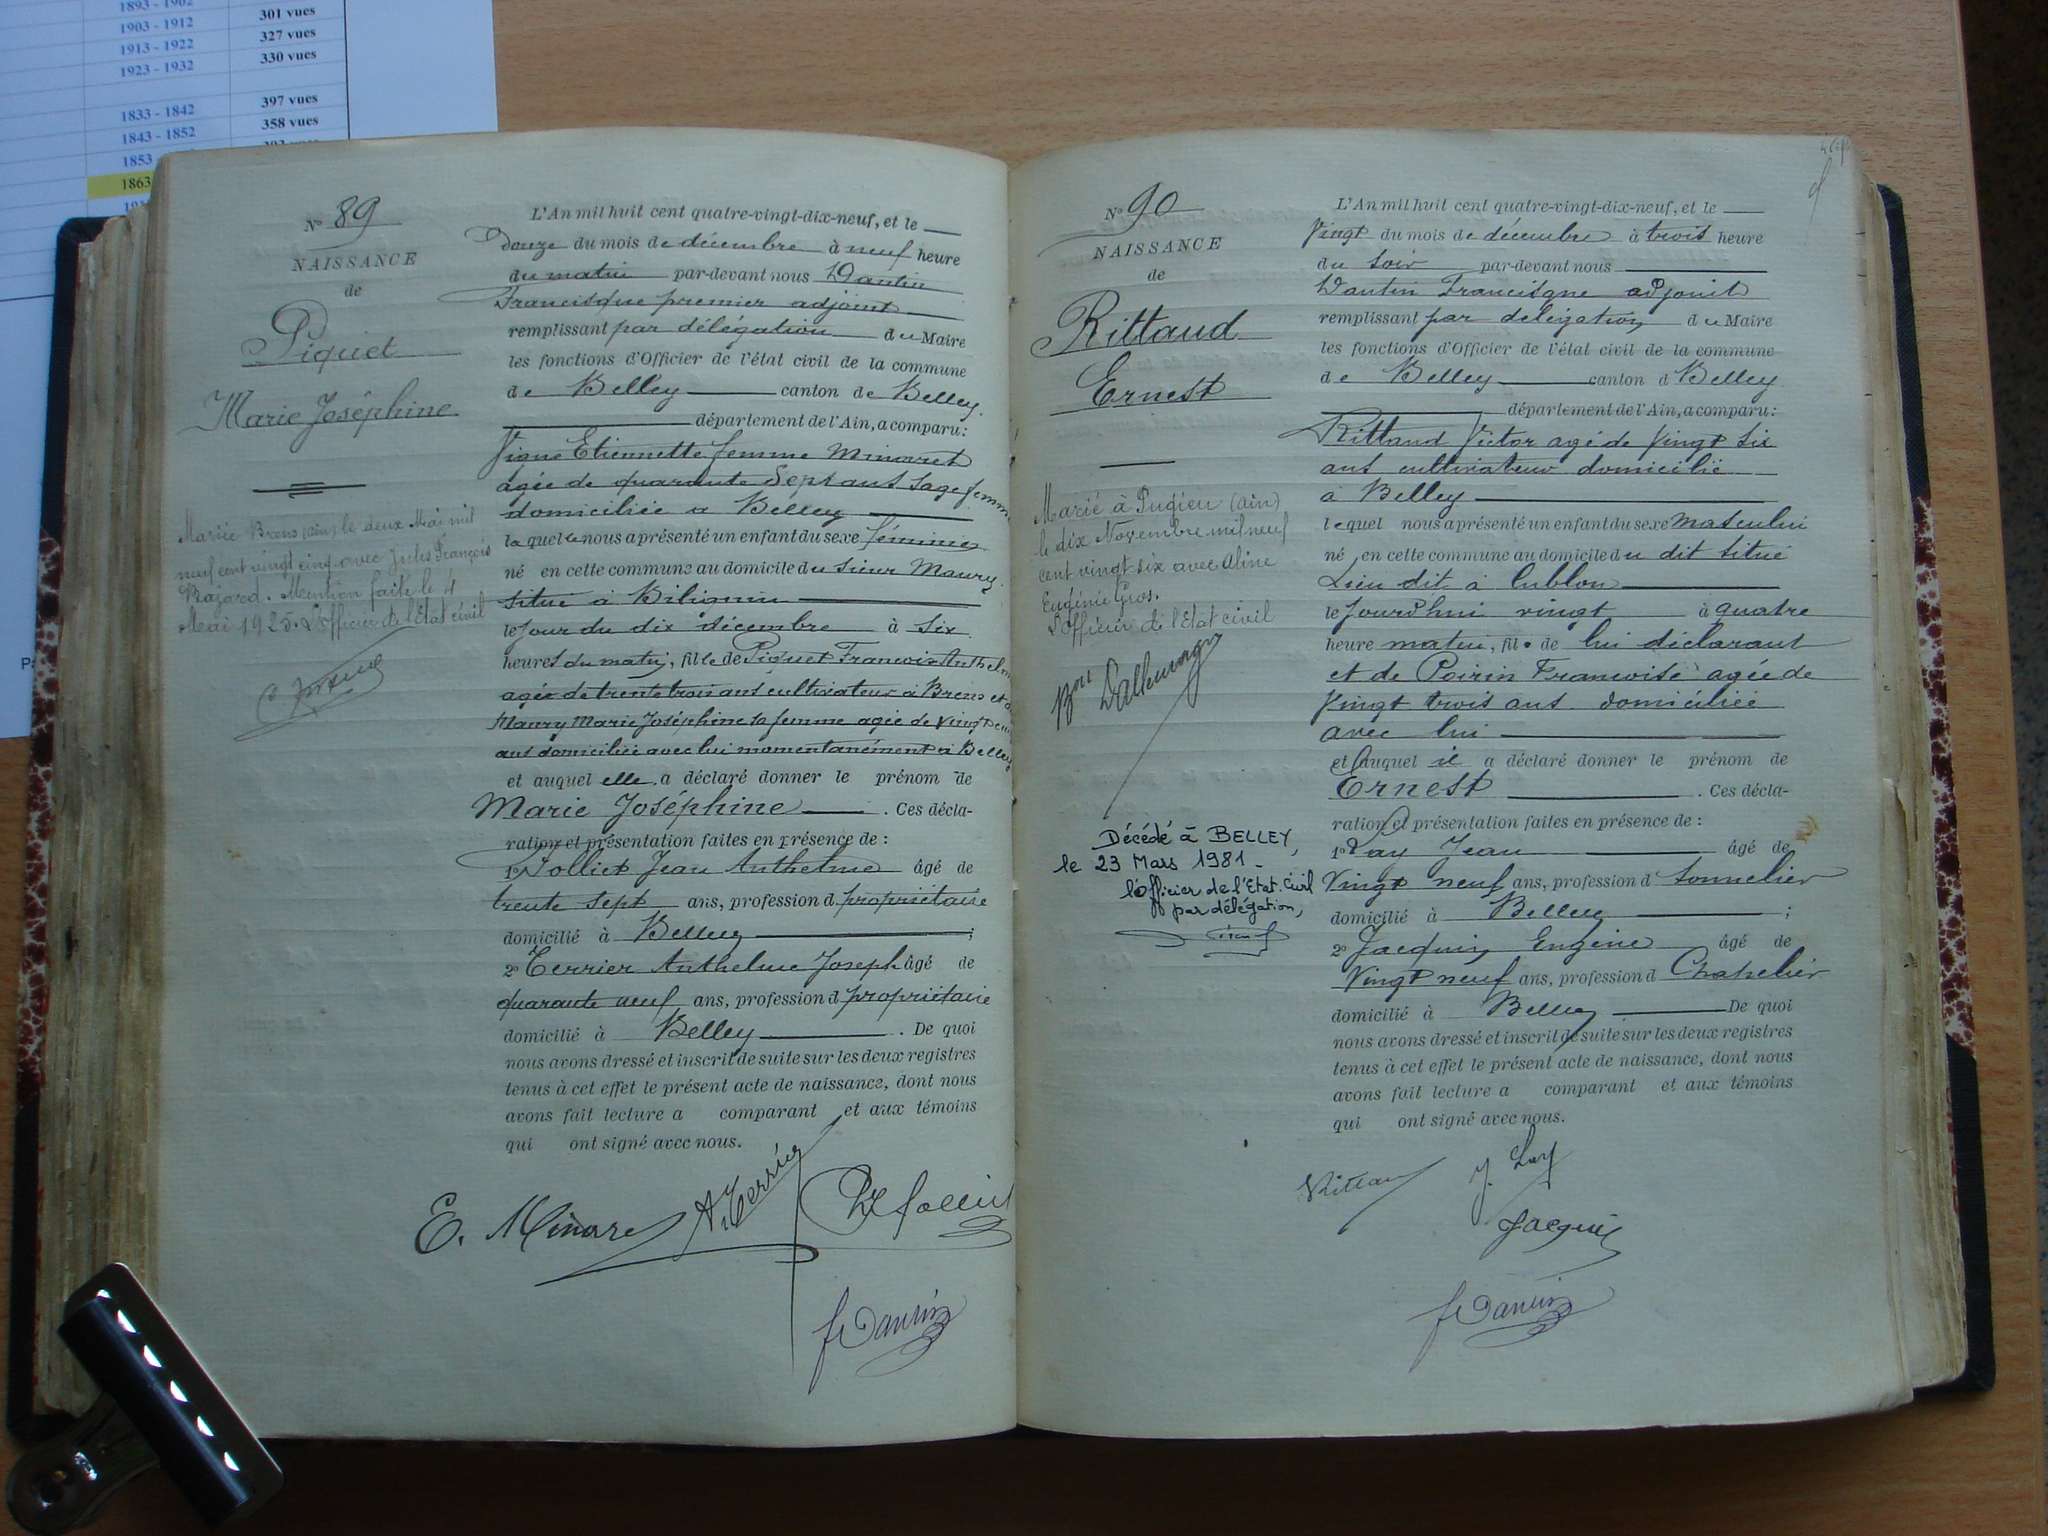 1893 - 1902
1903 - 1912 301 vues
1913 - 1922 327 vues
1923 - 1932 330 vues
1833 - 1842 397 vues
1843 - 1852 358 vues
1853
1863
N° 89
NAISSANCE
de
Piquet
Marie Joséphine
Mariée Brens (ain) le deux Mai mil
neuf cent vingt cinq avec Jules François
Bazard. Mention faite le 4
Mai 1925. L'officier de l'Etat civil
L'An mil huit cent quatre-vingt-dix-neuf, et le
Douze du mois de décembre à neuf heure
du matin par-devant nous Dantin
Francisque premier adjoint
remplissant par délégation du Maire
les fonctions d'Officier de l'état civil de la commune
de Belley canton de Belley.
département de l'Ain, a comparu:
Vigne Etiennette femme Minaret
agée de quarante Sept ans Sage femme
domiciliée a Belley
laquelle nous a présenté un enfant du sexe féminin
né en cette commune au domicile du sieur Maury.
situé à Bilignin
le jour du dix décembre à six
heures du matin, fille de Piquet Francois Anthelme
agée de trente trois ans cultivateur à Brens et de
Maury Marie Joséphine sa femme agée de vingt
ans domiciliée avec lui momentanément à Belley
et auquel elle a déclaré donner le prénom de
Marie Joséphine . Ces décla-
ration et présentation faites en présence de :
1° Jolliet Jean Anthelme âgé de
trente sept ans, profession d propriétaire
domicilié à Belley ;
2° Terrier Anthelme Joseph âgé de
quarante neuf ans, profession d propriétaire
domicilié à Belley . De quoi
nous avons dressé et inscrit de suite sur les deux registres
tenus à cet effet le présent acte de naissance, dont nous
avons fait lecture a comparant et aux témoins
qui ont signé avec nous.
E. Minaret A. Terrier Jolliet
fr Dantin
N° 90
NAISSANCE
de
Rittaud
Ernest
Marié à Pugieu (ain)
le dix Novembre mil neuf
cent vingt six avec Aline
Eugénie Gros.
L'officier de l'Etat civil
Bon Dallemagne
Décédé à BELLEY,
le 23 Mars 1981 -
l'officier de l'Etat. Civil
par délégation,
L'An mil huit cent quatre-vingt-dix-neuf, et le
Vingt du mois de décembre à trois heure
du soir par-devant nous
Dantin Francisque adjoint
remplissant par délégation du Maire
les fonctions d'Officier de l'état civil de la commune
de Belley canton d Belley
département de l'Ain, a comparu:
Rittaud Victor agé de vingt six
ans cultivateur domicilié
à Belley
lequel nous a présenté un enfant du sexe Masculin
né en cette commune au domicile du dit situé
Lieu dit à
le jourd'hui vingt à quatre
heure matin, fils de lui déclarant
et de Poirin Francoise agée de
Vingt trois ans domiciliée
avec lui
et auquel il a déclaré donner le prénom de
Ernest . Ces décla-
ration et présentation faites en présence de :
1° Lay Jean âgé de
Vingt neuf ans, profession d tonnelier
domicilié à Belley ;
2° Jacquin Eugène âgé de
Vingt neuf ans, profession d Chapelier
domicilié à Belley De quoi
nous avons dressé et inscrit de suite sur les deux registres
tenus à cet effet le présent acte de naissance, dont nous
avons fait lecture a comparant et aux témoins
qui ont signé avec nous.
Rittaud J. Lay
Jacquin
fr Dantin